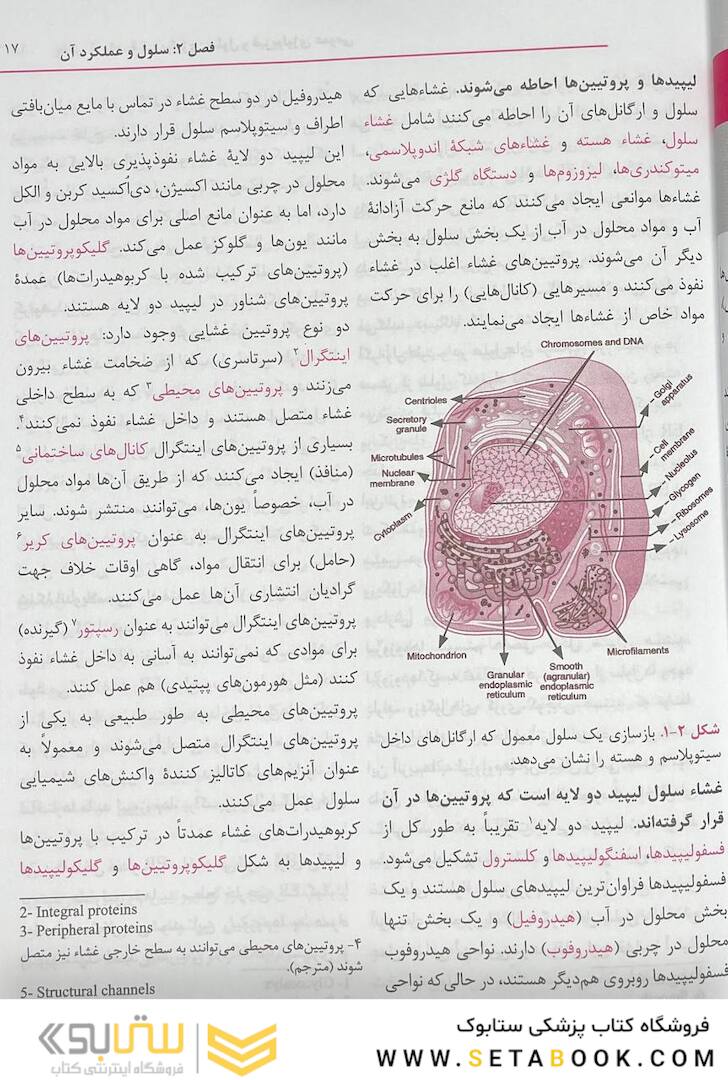 فصل ۲: سلول و عملکرد آن
۱۷
لیپیدها و پروتیین‌ها احاطه می‌شوند. غشاءهایی که
سلول و ارگانل‌های آن را احاطه می‌کنند شامل غشاء
سلول، غشاء هسته و غشاءهای شبکهٔ اندوپلاسمی،
میتوکندری‌ها، لیزوزوم‌ها و دستگاه گلژی می‌شوند.
غشاءها موانعی ایجاد می‌کنند که مانع حرکت آزادانهٔ
آب و مواد محلول در آب از یک بخش سلول به بخش
دیگر آن می‌شوند. پروتیین‌های غشاء اغلب در غشاء
نفوذ می‌کنند و مسیرهایی (کانال‌هایی) را برای حرکت
مواد خاص از غشاءها ایجاد می‌نمایند.
Chromosomes and DNA
Centrioles
Secretory
granule
Microtubules
Nuclear
membrane
Cytoplasm
Golgi
apparatus
Cell
membrane
Nucleolus
Glycogen
Ribosomes
Lysosome
Mitochondrion
Granular
endoplasmic
reticulum
Smooth
(agranular)
endoplasmic
reticulum
Microfilaments
شکل ۲-۱. بازسازی یک سلول معمول که ارگانل‌های داخل
سیتوپلاسم و هسته را نشان می‌دهد.
غشاء سلول لیپید دو لایه است که پروتیین‌ها در آن
قرار گرفته‌اند. لیپید دو لایه۱ تقریباً به طور کل از
فسفولیپیدها، اسفنگولیپیدها و کلسترول تشکیل می‌شود.
فسفولیپیدها فراوان‌ترین لیپیدهای سلول هستند و یک
بخش محلول در آب (هیدروفیل) و یک بخش تنها
محلول در چربی (هیدروفوب) دارند. نواحی هیدروفوب
فسفولیپیدها روبروی هم‌دیگر هستند، در حالی‌که نواحی
هیدروفیل در دو سطح غشاء در تماس با مایع میان‌بافتی
اطراف و سیتوپلاسم سلول قرار دارند.
این لیپید دو لایهٔ غشاء نفوذپذیری بالایی به مواد
محلول در چربی مانند اکسیژن، دی‌اُکسید کربن و الکل
دارد، اما به عنوان مانع اصلی برای مواد محلول در آب
مانند یون‌ها و گلوکز عمل می‌کند. گلیکوپروتیین‌ها
(پروتیین‌های ترکیب شده با کربوهیدرات‌ها) عمدهٔ
پروتیین‌های شناور در لیپید دو لایه هستند.
دو نوع پروتیین غشایی وجود دارد: پروتیین‌های
اینتگرال۲ (سرتاسری) که از ضخامت غشاء بیرون
می‌زنند و پروتیین‌های محیطی۳ که به سطح داخلی
غشاء متصل هستند و داخل غشاء نفوذ نمی‌کنند۴.
بسیاری از پروتیین‌های اینتگرال کانال‌های ساختمانی۵
(منافذ) ایجاد می‌کنند که از طریق آن‌ها مواد محلول
در آب، خصوصاً یون‌ها، می‌توانند منتشر شوند. سایر
پروتیین‌های اینتگرال به عنوان پروتیین‌های کریر۶
(حامل) برای انتقال مواد، گاهی اوقات خلاف جهت
گرادیان انتشاری آن‌ها عمل می‌کنند.
پروتیین‌های اینتگرال می‌توانند به عنوان رسپتور۷ (گیرنده)
برای موادی که نمی‌توانند به آسانی به داخل غشاء نفوذ
کنند (مثل هورمون‌های پپتیدی) هم عمل کنند.
پروتیین‌های محیطی به طور طبیعی به یکی از
پروتیین‌های اینتگرال متصل می‌شوند و معمولاً به
عنوان آنزیم‌های کاتالیز کنندهٔ واکنش‌های شیمیایی
سلول عمل می‌کنند.
کربوهیدرات‌های غشاء عمدتاً در ترکیب با پروتیین‌ها
و لیپیدها به شکل گلیکوپروتیین‌ها و گلیکولیپیدها
2- Integral proteins
3- Peripheral proteins
۴- پروتیین‌های محیطی می‌توانند به سطح خارجی غشاء نیز متصل
شوند (مترجم).
5- Structural channels
فروشگاه کتاب پزشکی ستابوک
WWW.SETABOOK.COM
ستابوک
فروشگاه اینترنتی کتاب